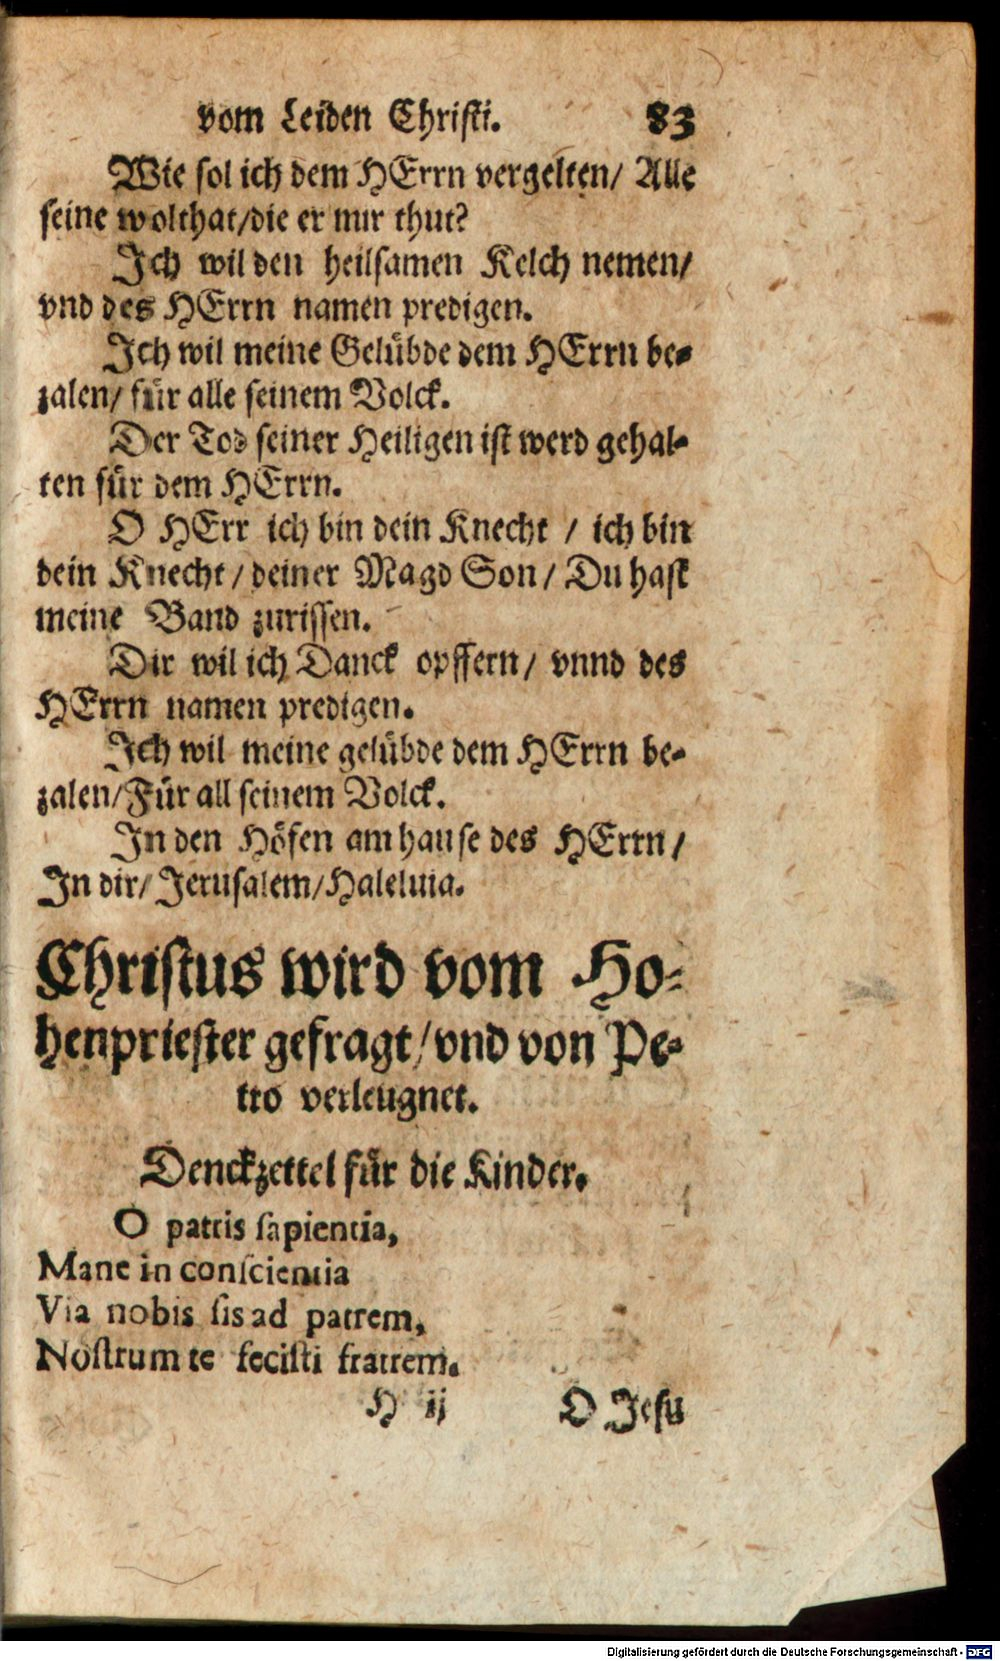 vom Leiden Christi. 83
Wie sol ich dem HErrn vergelten/ Alle
seine wolthat/die er mir thut?
Ich wil den heilsamen Kelch nemen/
vnd des HErrn namen predigen.
Ich wil meine Gelübde dem HErrn be-
zalen/ für alle seinem Volck.
Der Tod seiner Heiligen ist werd gehal-
ten für dem HErrn.
O HErr ich bin dein Knecht / ich bin
dein Knecht/ deiner Magd Son/ Du hast
meine Band zurissen.
Dir wil ich Danck opffern/ vnnd des
HErrn namen predigen.
Ich wil meine gelübde dem HErrn be-
zalen/Für all seinem Volck.
In den Höfen am hause des HErrn/
In dir/ Jerusalem/Haleluia.
Christus wird vom Ho-
henpriester gefragt/vnd von Pe-
tro verleugnet.
Denckzettel für die Kinder.
O patris sapientia,
Mane in conscientia
Via nobis sis ad patrem,
Nostrum te fecisti fratrem.
H ij O Jesu
Digitalisierung gefördert durch die Deutsche Forschungsgemeinschaft - DFG